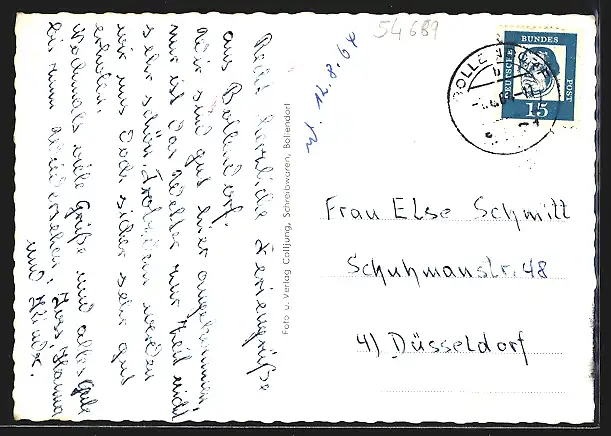 Recht herzliche Feriengrüße
aus Bollendorf.
Wir sind gut hier angekommen,
nur ist das Wetter zur Zeit nicht
sehr schön. Trotzdem werden
wir uns doch sicher sehr gut
erholen.
Nochmals viele Grüße und alles Gute
bis zum Wiedersehen, Hanna
und Kinder.
Foto u. Verlag Calljung, Schreibwaren, Bollendorf
12.8.64
54689
DEUTSCHE BUNDES POST
15
Frau Else Schmitt
Schuhmanstr. 48
41 Düsseldorf